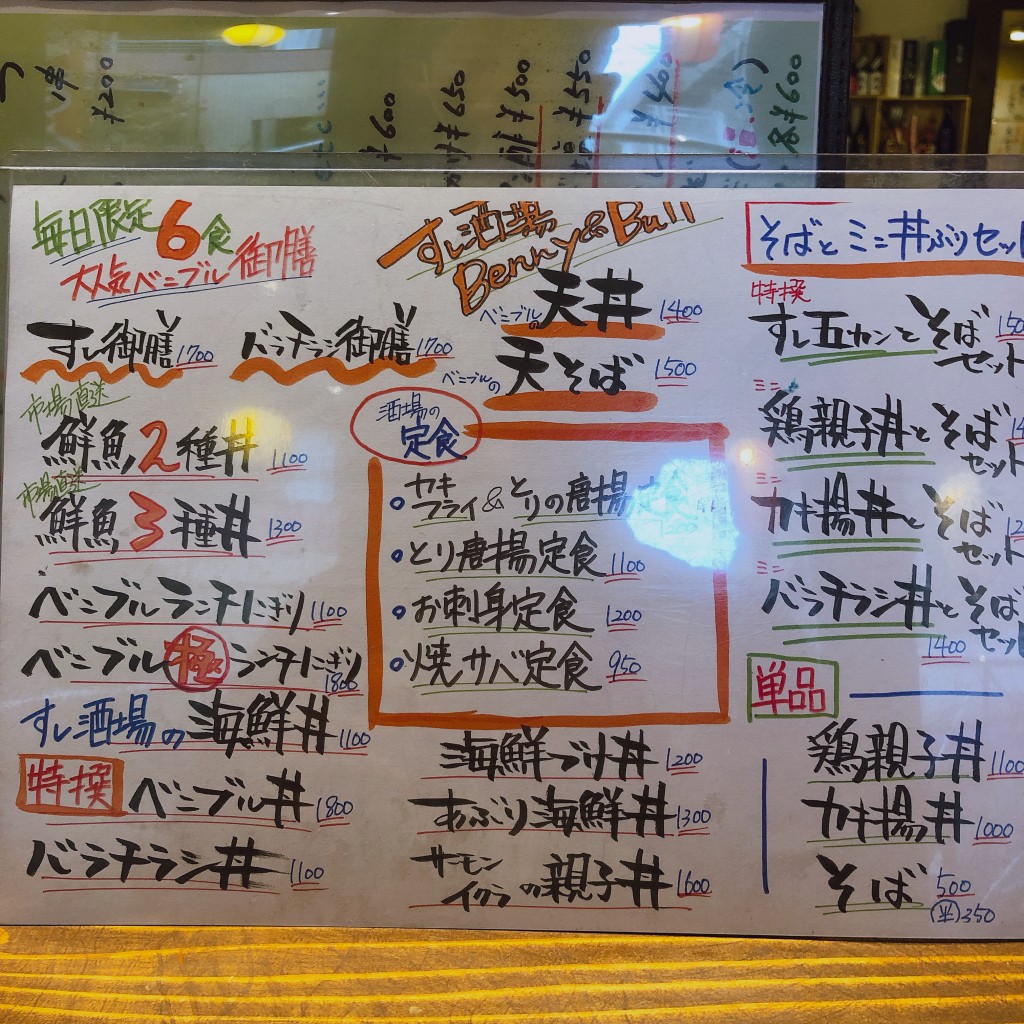 串
¥200
¥600
¥650
¥500
¥550
¥400
¥600
毎日限定6食
大人気ベニブル御膳
すし御膳 1700
バラチラシ御膳 1700
市場直送
鮮魚2種丼 1100
市場直送
鮮魚3種丼 1300
ベニブルランチにぎり 1100
ベニブル極ランチにぎり 1800
すし酒場の海鮮丼 1100
特撰 ベニブル丼 1800
バラチラシ丼 1100
すし酒場
Benny & Bull
ベニブルの天丼 1400
ベニブルの天そば 1500
酒場の
定食
カキ
フライ&とりの唐揚
とり唐揚定食 1100
お刺身定食 1200
焼サバ定食 950
海鮮ブリ丼 1200
あぶり海鮮丼 1300
サーモン
イクラの親子丼 1600
そばとミニ丼ぶりセット
特撰
すし五カンとそば
セット
ミニ
鶏親子丼とそば
セット
ミニ
カキ揚丼とそば
セット
ミニ
バラチラシ丼とそば
セット
1400
単品
鶏親子丼 1100
カキ揚丼 1000
そば 500
半 350